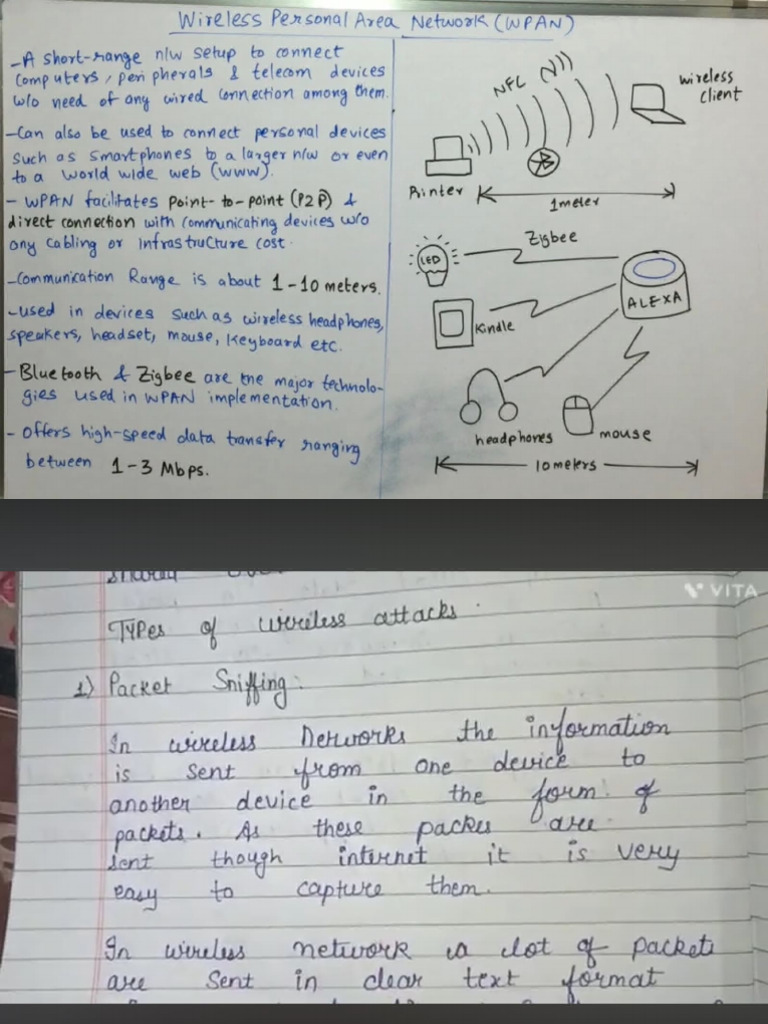 Wireless Personal Area Network (WPAN)
- A short-range n/w setup to connect
computers, peripherals & telecom devices
w/o need of any wired connection among them.
- Can also be used to connect personal devices
such as smartphones to a larger n/w or even
to a world wide web (www).
- WPAN facilitates point-to-point (P2P) &
direct connection with communicating devices w/o
any cabling or infrastructure cost.
- Communication Range is about 1-10 meters.
- used in devices such as wireless headphones,
speakers, headset, mouse, keyboard etc.
- Bluetooth & Zigbee are the major technolo-
gies used in WPAN implementation.
- Offers high-speed data transfer ranging
between 1-3 Mbps.
NFC
wireless
client
Printer
1meter
Zigbee
LED
ALEXA
Kindle
headphones
mouse
10meters
VITA
Types of wireless attacks.
1) Packet Sniffing:
In wireless Networks the information
is sent from one device to
another device in the form of
packets. As these packes are
sent though internet it is very
easy to capture them.
In wireless network a lot of packets
are sent in clear text format